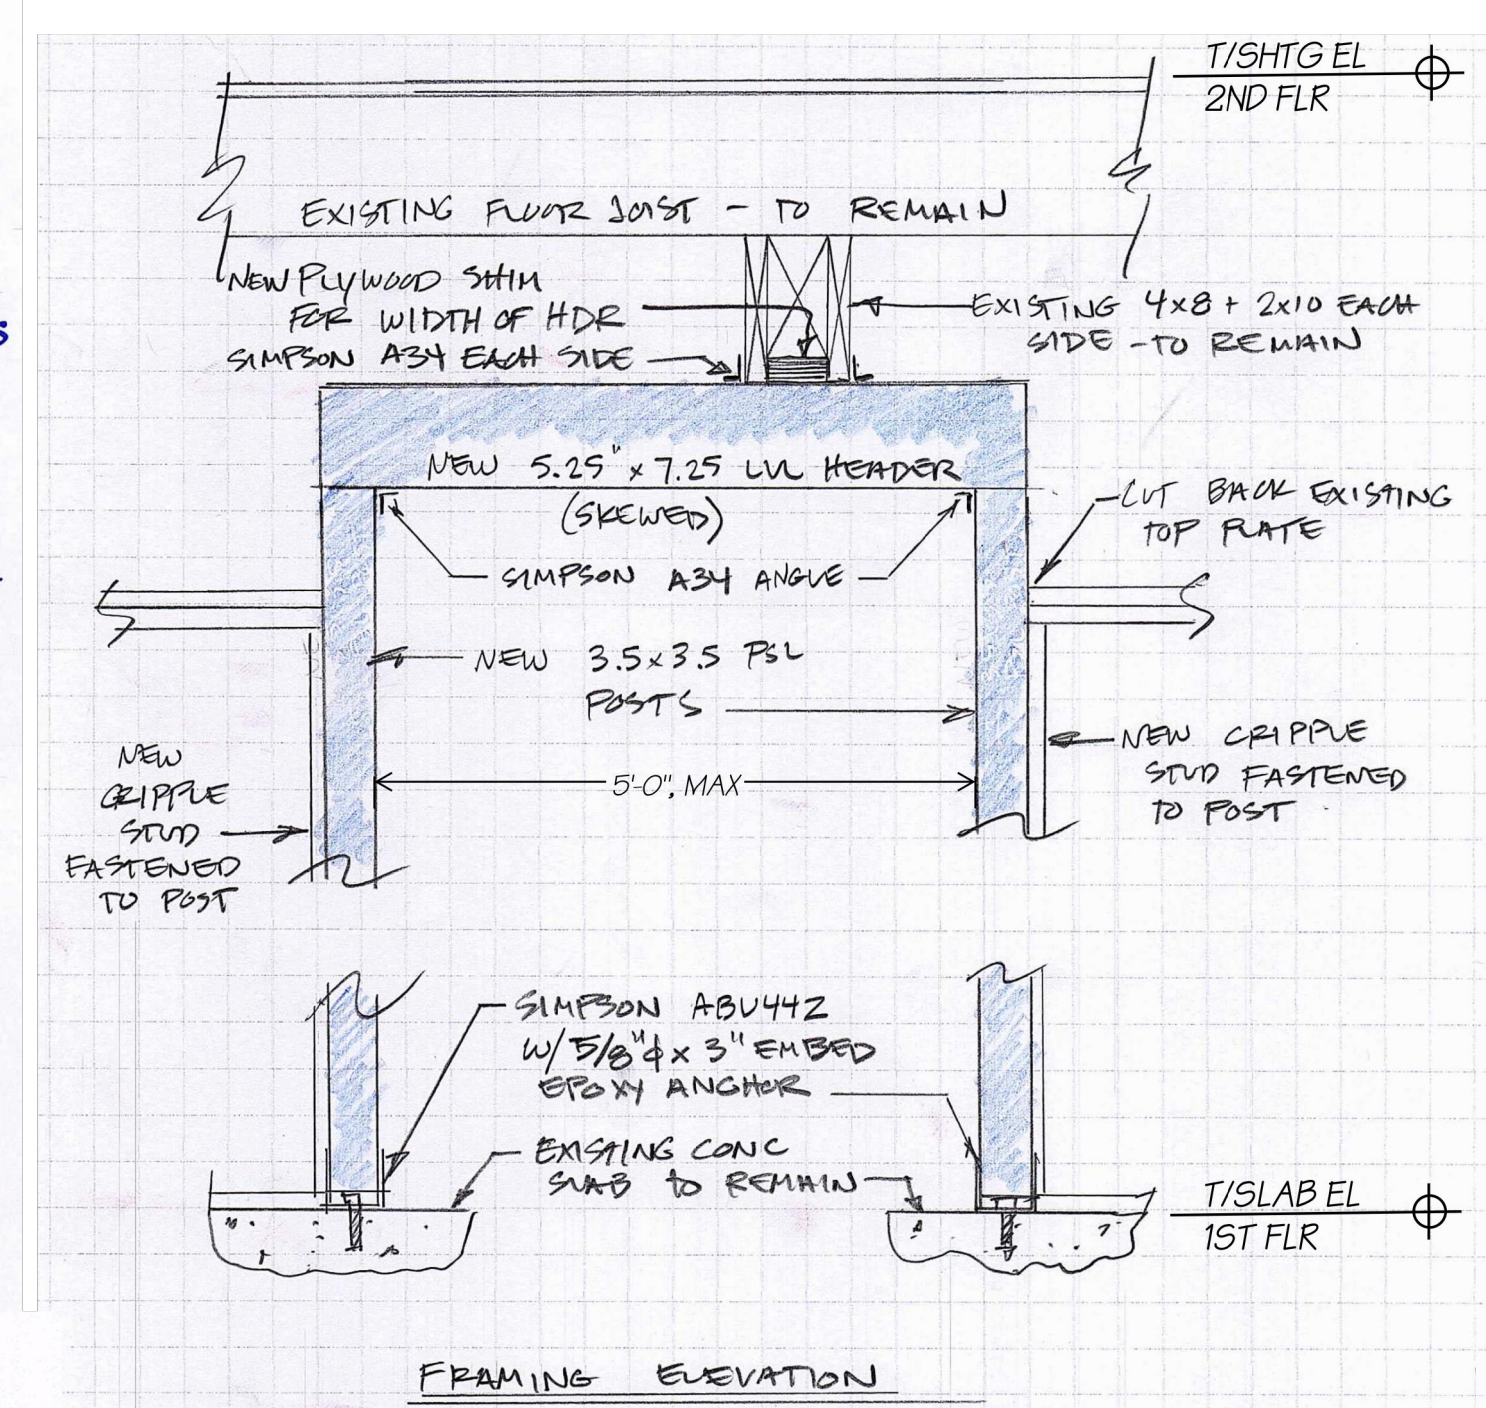 T/SHTG EL
2ND FLR
EXISTING FLOOR JOIST - TO REMAIN
NEW PLYWOOD SHIM
FOR WIDTH OF HDR
SIMPSON A34 EACH SIDE
EXISTING 4x8 + 2x10 EACH
SIDE - TO REMAIN
NEW 5.25" x 7.25 LVL HEADER
(SKEWED)
CUT BACK EXISTING
TOP PLATE
SIMPSON A34 ANGLE
NEW 3.5x3.5 PSL
POSTS
5'-0", MAX
NEW
CRIPPLE
STUD
FASTENED
TO POST
NEW CRIPPLE
STUD FASTENED
TO POST
SIMPSON ABU44Z
W/ 5/8"ϕ x 3" EMBED
EPOXY ANCHOR
EXISTING CONC
SLAB TO REMAIN
T/SLAB EL
1ST FLR
FRAMING ELEVATION